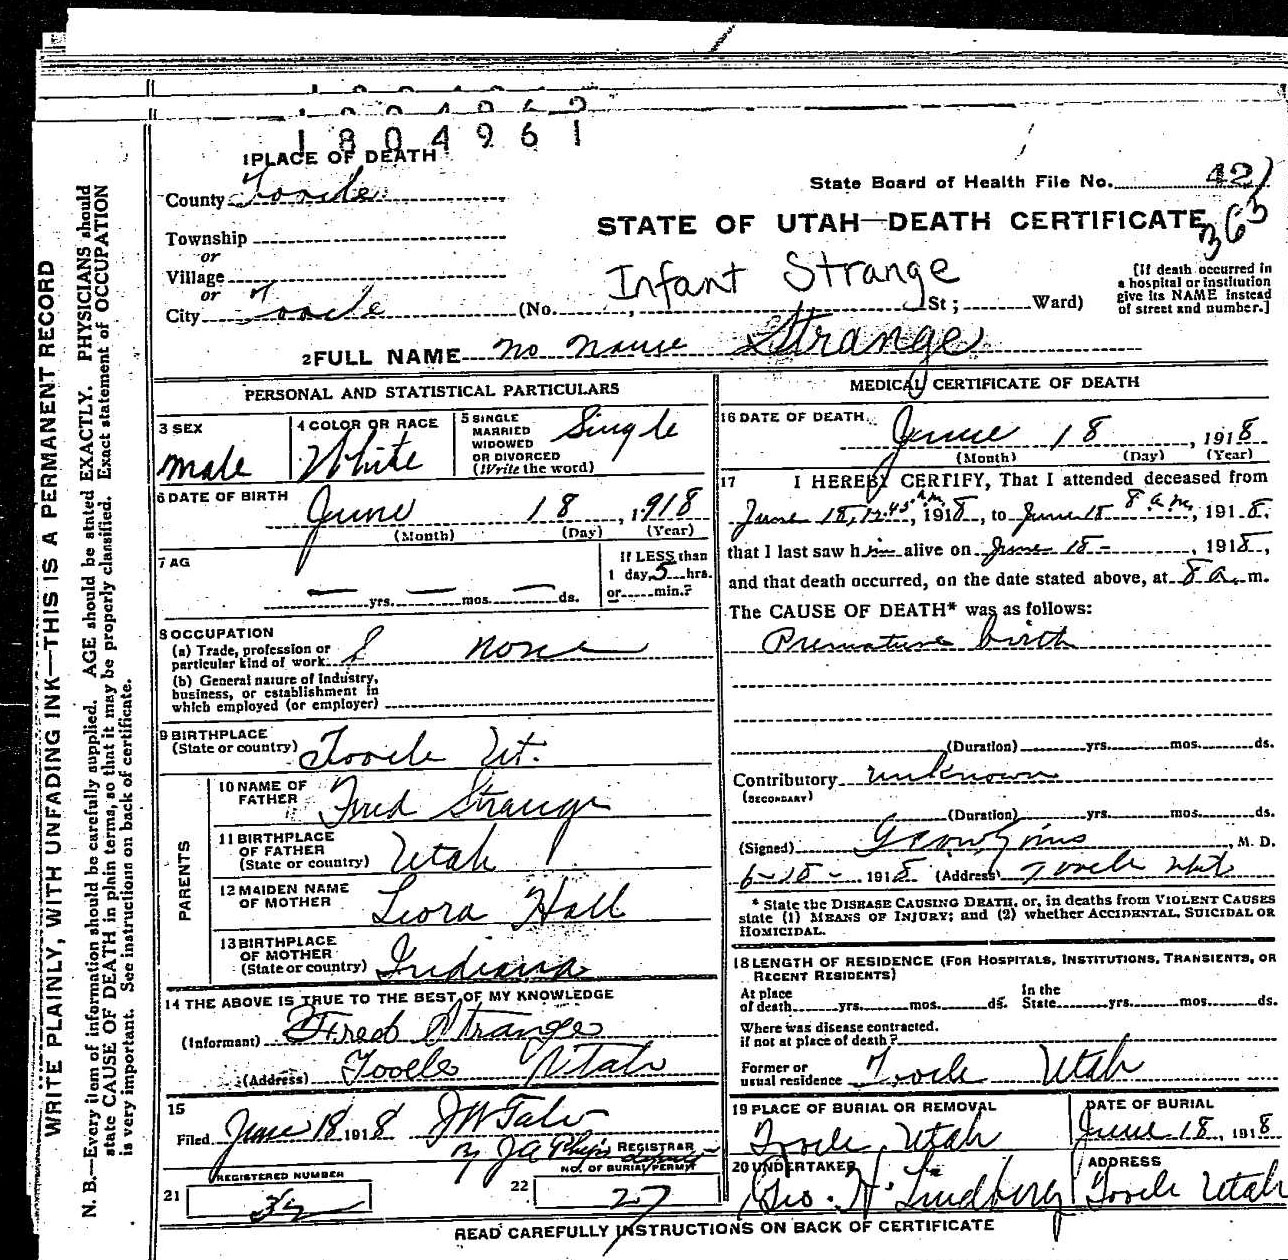 1804961
1 PLACE OF DEATH
County Tooele
State Board of Health File No. 421
363
Township
or
Village
or
City Tooele
STATE OF UTAH—DEATH CERTIFICATE
Infant Strange
(No. , St; Ward)
[If death occurred in
a hospital or institution
give its NAME instead
of street and number.]
2 FULL NAME no name Strange
PERSONAL AND STATISTICAL PARTICULARS
3 SEX
male
4 COLOR OR RACE
White
5 SINGLE
MARRIED
WIDOWED
OR DIVORCED
(Write the word)
Single
6 DATE OF BIRTH
June 18, 1918
(Month) (Day) (Year)
7 AG
yrs. mos. ds.
If LESS than
1 day, 5 hrs.
or min.?
8 OCCUPATION
(a) Trade, profession or
particular kind of work none
(b) General nature of Industry,
business, or establishment in
which employed (or employer)
9 BIRTHPLACE
(State or country) Tooele Ut.
PARENTS
10 NAME OF
FATHER Fred Strange
11 BIRTHPLACE
OF FATHER
(State or country) Utah
12 MAIDEN NAME
OF MOTHER Leora Hall
13 BIRTHPLACE
OF MOTHER
(State or country) Indiana
14 THE ABOVE IS TRUE TO THE BEST OF MY KNOWLEDGE
(Informant) Fred Strange
(Address) Tooele Utah
15
Filed June 18 1918
REGISTRAR
REGISTERED NUMBER
21
NO. OF BURIAL PERMIT
22 27
MEDICAL CERTIFICATE OF DEATH
16 DATE OF DEATH
June 18, 1918
(Month) (Day) (Year)
17 I HEREBY CERTIFY, That I attended deceased from
June 18, 12.45 a.m., 1918, to June 18 8 a.m., 1918,
that I last saw him alive on June 18 -, 1918,
and that death occurred, on the date stated above, at 8 a. m.
The CAUSE OF DEATH* was as follows:
Premature birth
(Duration) yrs. mos. ds.
Contributory unknown
(SECONDARY)
(Duration) yrs. mos. ds.
(Signed) , M. D.
6-18- 1918 (Address) Tooele Utah
* State the DISEASE CAUSING DEATH, or, in deaths from VIOLENT CAUSES
state (1) MEANS OF INJURY; and (2) whether ACCIDENTAL, SUICIDAL OR
HOMICIDAL.
18 LENGTH OF RESIDENCE (FOR HOSPITALS, INSTITUTIONS, TRANSIENTS, OR
RECENT RESIDENTS)
At place
of death yrs. mos. ds.
In the
State yrs. mos. ds.
Where was disease contracted.
if not at place of death?
Former or
usual residence Tooele Utah
19 PLACE OF BURIAL OR REMOVAL
Tooele, Utah
DATE OF BURIAL
June 18, 1918
20 UNDERTAKER
Geo. H. Lindberg
ADDRESS
Tooele Utah
READ CAREFULLY INSTRUCTIONS ON BACK OF CERTIFICATE
WRITE PLAINLY, WITH UNFADING INK—THIS IS A PERMANENT RECORD
N. B.—Every item of information should be carefully supplied. AGE should be stated EXACTLY. PHYSICIANS should
state CAUSE OF DEATH in plain terms, so that it may be properly classified. Exact statement of OCCUPATION
is very important. See instructions on back of certificate.